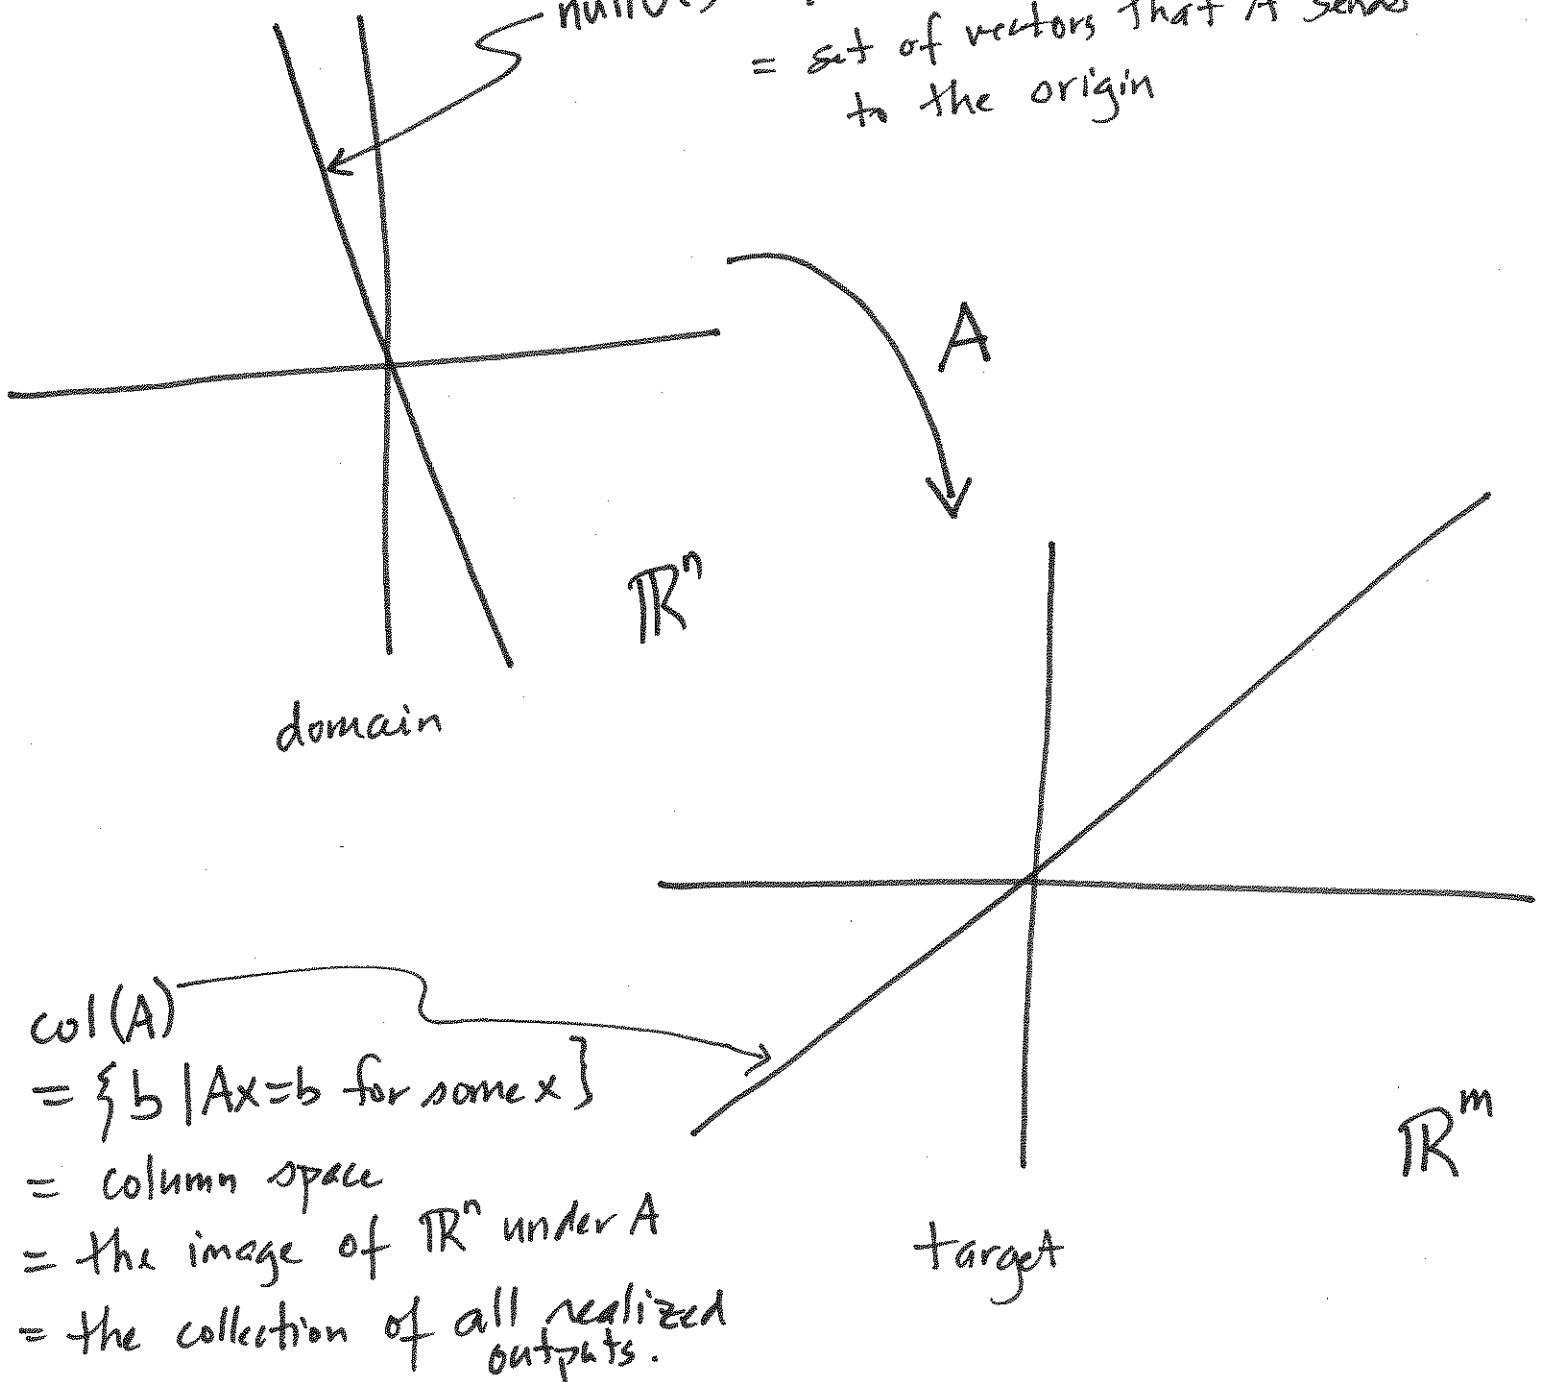 = set of vectors that A sends
to the origin
A
ℝⁿ
domain
col(A)
= {b | Ax=b for some x}
= column space
= the image of ℝⁿ under A
= the collection of all realized
outputs.
ℝᵐ
target